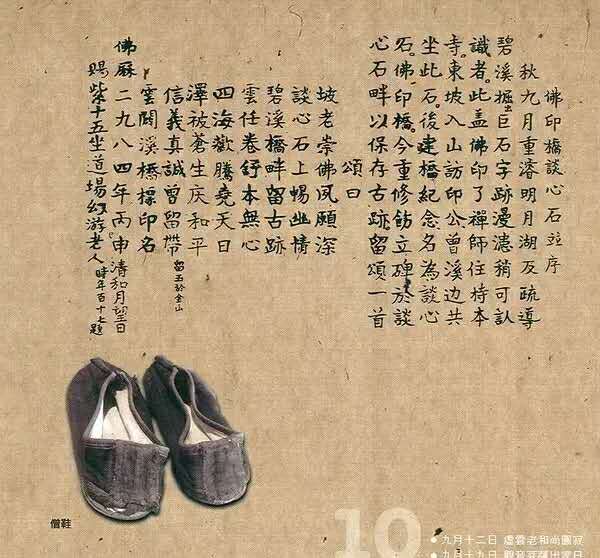 佛印橋談心石並序
秋九月重濬明月湖及疏導
碧溪掘出巨石字跡漫漶稍可認
識者。此盖佛印了禪師住持本
寺。東坡入山訪印公曾溪边共
坐此石。後建橋紀念名為談心
石。佛印橋。今重修飭立碑於談
心石畔以保存古跡留頌一首
頌曰
坡老崇佛夙願深
談心石上暢幽情
碧溪橋畔留古跡
雲任卷舒本無心
四海歡騰堯天日
澤被蒼生庆和平
信義真誠曾留帶 留玉於金山
雲開溪橋標印名
佛厤二九八四年丙申清和月望日
賜紫十五坐道場幻游老人時年百十七題
僧鞋
10
●九月十二日 虛雲老和尚圓寂
●九月十九日 觀音菩薩出家日